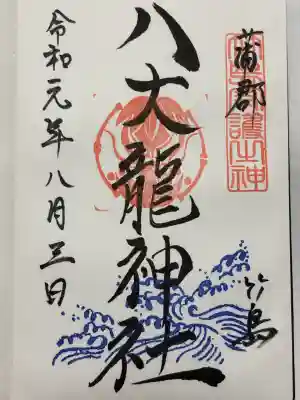 蒲郡
竹島
八大龍神社
令和元年八月三日